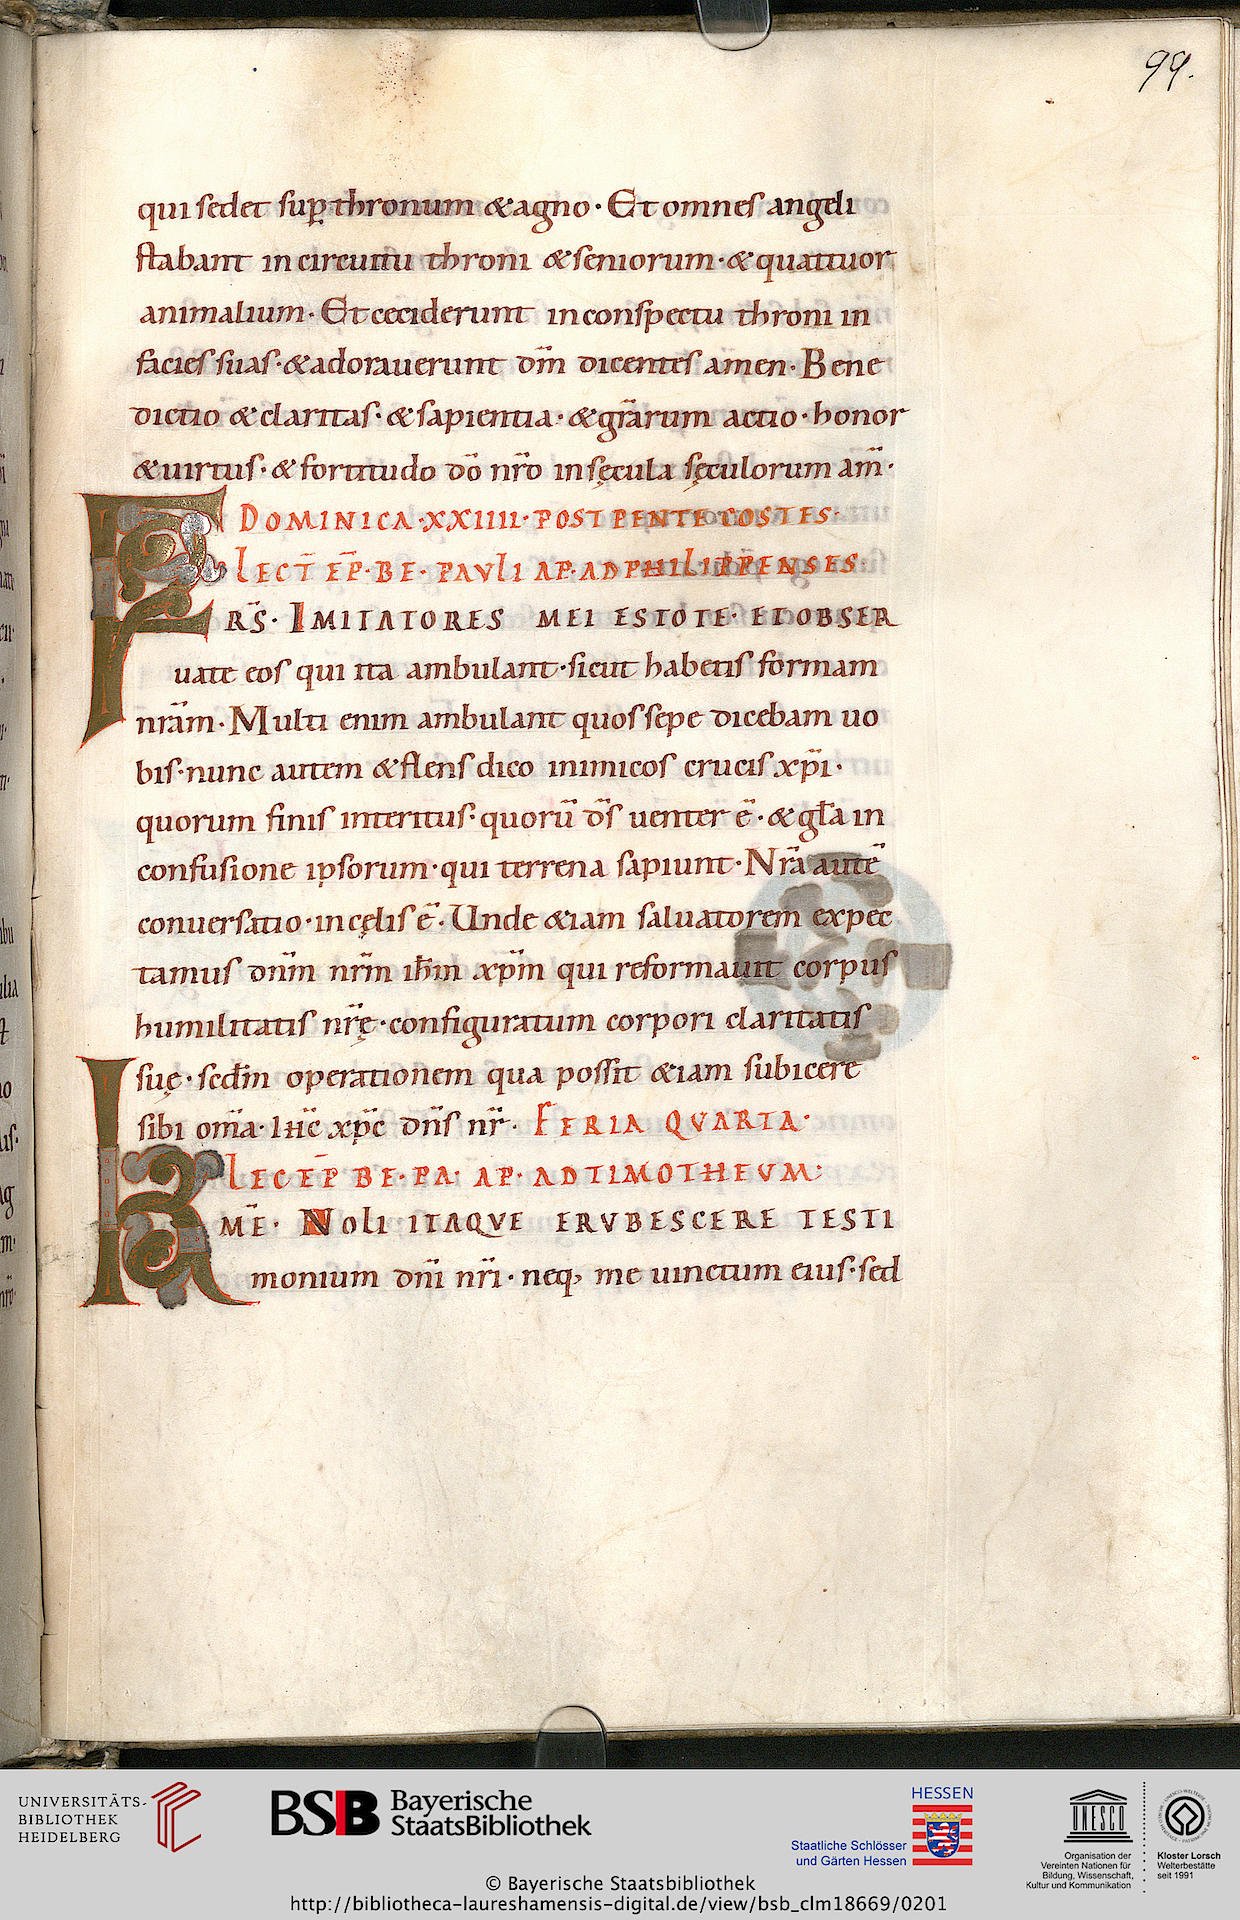 99.
qui sedet sup̱ thronum & agno · Et omnes angeli
stabant in circuitu throni & seniorum · & quattuor
animalium · Et ceciderunt in conspectu throni in
facies suas · & adorauerunt dm̄ dicentes amen · Bene
dictio & claritas · & sapientia · & gr̄arum actio · honor
& uirtus · & fortitudo dō nr̄o in sęcula sęculorum am̄ ·
DOMINICA · XXIIII · POST PENTECOSTES ·
LECT̄ EP̄ · BE · PAVLI AP · AD PHILIPPENSES ·
FRS̄ · IMITATORES MEI ESTOTE · ET OBSER
uate eos qui ita ambulant · sicut habetis formam
nr̄am · Multi enim ambulant quos sepe dicebam uo
bis · nunc autem & flens dico inimicos crucis xp̄i ·
quorum finis interitus · quorū d̄s uenter ē · & gl̄a in
confusione ipsorum · qui terrena sapiunt · Nr̄a autē
conuersatio · in cęlis ē · Unde &iam saluatorem expec
tamus dn̄m nr̄m ih̄m xp̄m qui reformauit corpus
humilitatis nr̄ę · configuratum corpori claritatis
suę · sed̄m operationem qua possit &iam subicere
sibi om̄a · ihc̄ xpc̄ dn̄s nr̄ · FERIA QVARTA ·
LEC EP̄ BE · PA · AP · AD TIMOTHEVM ·
KMĒ · NOLI ITAQVE ERVBESCERE TESTI
monium dn̄i nr̄i · neq, me uinctum eius · sed
UNIVERSITÄTS-
BIBLIOTHEK
HEIDELBERG
BSB Bayerische
StaatsBibliothek
HESSEN
Staatliche Schlösser
und Gärten Hessen
UNESCO
Organisation der
Vereinten Nationen für
Bildung, Wissenschaft,
Kultur und Kommunikation
Kloster Lorsch
Welterbestätte
seit 1991
© Bayerische StaatsBibliothek
http://bibliotheca-laureshamensis-digital.de/view/bsb_clm18669/0201